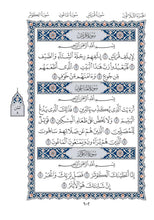 سُورَةُ قُرَيْشٍ
بِسْمِ ٱللَّهِ ٱلرَّحْمَٰنِ ٱلرَّحِيمِ
لِإِيلَٰفِ قُرَيْشٍ ١ إِۦلَٰفِهِمْ رِحْلَةَ ٱلشِّتَآءِ وَٱلصَّيْفِ ٢
فَلْيَعْبُدُوا۟ رَبَّ هَٰذَا ٱلْبَيْتِ ٣ ٱلَّذِىٓ أَطْعَمَهُم
مِّن جُوعٍ وَءَامَنَهُم مِّنْ خَوْفٍۭ ٤
سُورَةُ ٱلْمَاعُونِ
بِسْمِ ٱللَّهِ ٱلرَّحْمَٰنِ ٱلرَّحِيمِ
أَرَءَيْتَ ٱلَّذِى يُكَذِّبُ بِٱلدِّينِ ١ فَذَٰلِكَ ٱلَّذِى
يَدُعُّ ٱلْيَتِيمَ ٢ وَلَا يَحُضُّ عَلَىٰ طَعَامِ ٱلْمِسْكِينِ ٣
فَوَيْلٌ لِّلْمُصَلِّينَ ٤ ٱلَّذِينَ هُمْ عَن صَلَاتِهِمْ سَاهُونَ ٥
ٱلَّذِينَ هُمْ يُرَآءُونَ ٦ وَيَمْنَعُونَ ٱلْمَاعُونَ ٧
سُورَةُ ٱلْكَوْثَرِ
بِسْمِ ٱللَّهِ ٱلرَّحْمَٰنِ ٱلرَّحِيمِ
إِنَّآ أَعْطَيْنَٰكَ ٱلْكَوْثَرَ ١ فَصَلِّ لِرَبِّكَ وَٱنْحَرْ ٢
إِنَّ شَانِئَكَ هُوَ ٱلْأَبْتَرُ ٣
٦٠٢